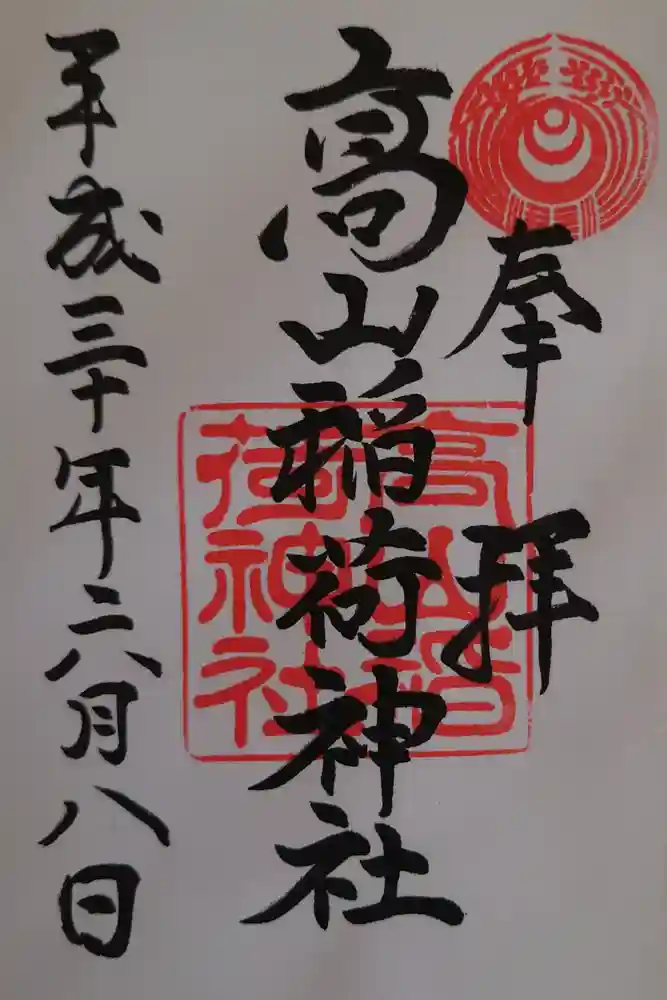 奉拝
高山稲荷神社
平成三十年六月八日
高山稲
荷神社